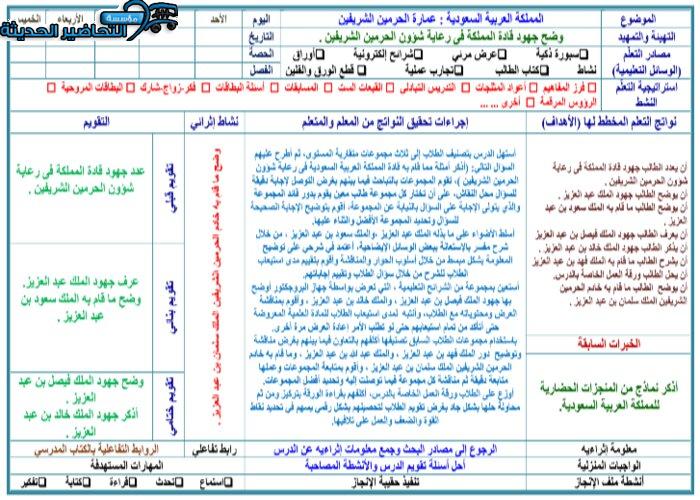 مؤسسة
التحاضير الحديثة
الموضوع
المملكة العربية السعودية : عمارة الحرمين الشريفين
اليوم
الأحد
الأربعاء
الخميس
التهيئة والتمهيد
وضح جهود قادة المملكة في رعاية شؤون الحرمين الشريفين .
التاريخ
مصادر التعلم
(الوسائل التعليمية)
سبورة ذكية عرض مرئي شرائح إلكترونية أوراق
نشاط كتاب الطالب تجارب عملية قطع الورق والفلين
الحصة
الفصل
استراتيجية التعلم
النشط
فرز المفاهيم أعواد المثلجات التدريس التبادلي القبعات الست المسابقات أسئلة البطاقات فكر-زواج-شارك البطاقات المروحية
الرؤوس المرقمة أخرى ... ...
نواتج التعلم المخطط لها (الأهداف)
إجراءات تحقيق النواتج من المعلم والمتعلم
نشاط إثرائي
التقويم
أن يعدد الطالب جهود قادة المملكة في رعاية
شؤون الحرمين الشريفين .
أن يوضح الطالب جهود الملك عبد العزيز .
أن يوضح الطالب ما قام به الملك سعود بن عبد
العزيز .
أن يعرف الطالب جهود الملك فيصل بن عبد العزيز
أن يذكر الطالب جهود الملك خالد بن عبد العزيز .
أن يشرح الطالب ما قام به الملك فهد بن عبد العزيز .
أن يحل الطالب ورقة العمل الخاصة بالدرس.
أن يوضح الطالب ما قام به خادم الحرمين
الشريفين الملك سلمان بن عبد العزيز .
الخبرات السابقة
أذكر نماذج من المنجزات الحضارية
للمملكة العربية السعودية.
أستهل الدرس بتصنيف الطلاب إلى ثلاث مجموعات متقاربة المستوى، ثم أطرح عليهم
السؤال التالي: (أذكر أمثلة مما قام به قادة المملكة العربية السعودية في رعاية شؤون
الحرمين الشريفين )، تقوم المجموعات بالتباحث فيما بينهم بغرض التوصل لإجابة دقيقة
للسؤال محل النقاش، على أن تختار كل مجموعة طالب معين يقوم بدور قائد المجموعة
والذي يتولى الإجابة على السؤال بالنيابة عن المجموعة، أقوم بتوضيح الإجابة الصحيحة
للسؤال وتحديد المجموعة الأفضل والثناء عليها.
أسلط الأضواء على ما بذله الملك عبد العزيز ،والملك سعود بن عبد العزيز ، من خلال
شرح مفسر بالاستعانة ببعض الوسائل الايضاحية، أعتمد في شرحي على توضيح
المعلومة بشكل مبسط من خلال أسلوب الحوار والمناقشة وأقوم بتقييم مدى استيعاب
الطلاب للشرح من خلال سؤال الطلاب وتقييم إجاباتهم.
أستعين بمجموعة من الشرائح التعليمية ، التي تعرض بواسطة جهاز البروجكتور أوضح
بها جهود الملك فيصل بن عبد العزيز ، والملك خالد بن عبد العزيز ، وأقوم بمناقشة
العرض ومحتوياته مع الطلاب، وأنتبه لمدى استيعاب الطلاب للمادة العلمية المعروضة
حتى أتأكد من تمام استيعابهم حتى لو تطلب الأمر إعادة العرض مرة أخرى.
باستخدام مجموعات الطلاب السابق تصنيفها أكلفهم بالتعاون فيما بينهم بغرض مناقشة
وتوضيح دور الملك فهد بن عبد العزيز ، والملك عبد الله بن عبد العزيز ، وما قام به خادم
الحرمين الشريفين الملك سلمان بن عبد العزيز ، وأقوم بمتابعة المجموعات وعملها
متابعة دقيقة ثم مناقشة كل مجموعة فيما توصلت إليه وتحديد أفضل المجموعات.
أوزع على الطلاب ورقة العمل الخاصة بالدرس، أكلفهم بقراءة الورقة بتركيز ومن ثم
محاولة حلها بشكل جاد بغرض تقويم الطلاب لتحصيلهم بشكل رقمي يسهم في تحديد نقاط
القوة والضعف والعمل على تلافيها.
وضح ما قام به خادم الحرمين الشريفين الملك سلمان بن عبد العزيز .
تقويم قبلي
عدد جهود قادة المملكة في رعاية
شؤون الحرمين الشريفين .
تقويم بنائي
عرف جهود الملك عبد العزيز.
وضح ما قام به الملك سعود بن
عبد العزيز .
تقويم ختامي
وضح جهود الملك فيصل بن عبد
العزيز .
أذكر جهود الملك خالد بن عبد
العزيز .
معلومة إثرائيه
الرجوع إلى مصادر البحث وجمع معلومات إثرائيه عن الدرس
رابط تفاعلي
الروابط التفاعلية بالكتاب المدرسي
الواجبات المنزلية
أحل أسئلة تقويم الدرس والأنشطة المصاحبة
المهارات المستهدفة
أنشطة ملف الإنجاز
تنفيذ حقيبة الإنجاز
استماع تحدث قراءة كتابة تفكير